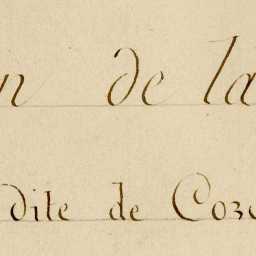 n de la
dite de Coze